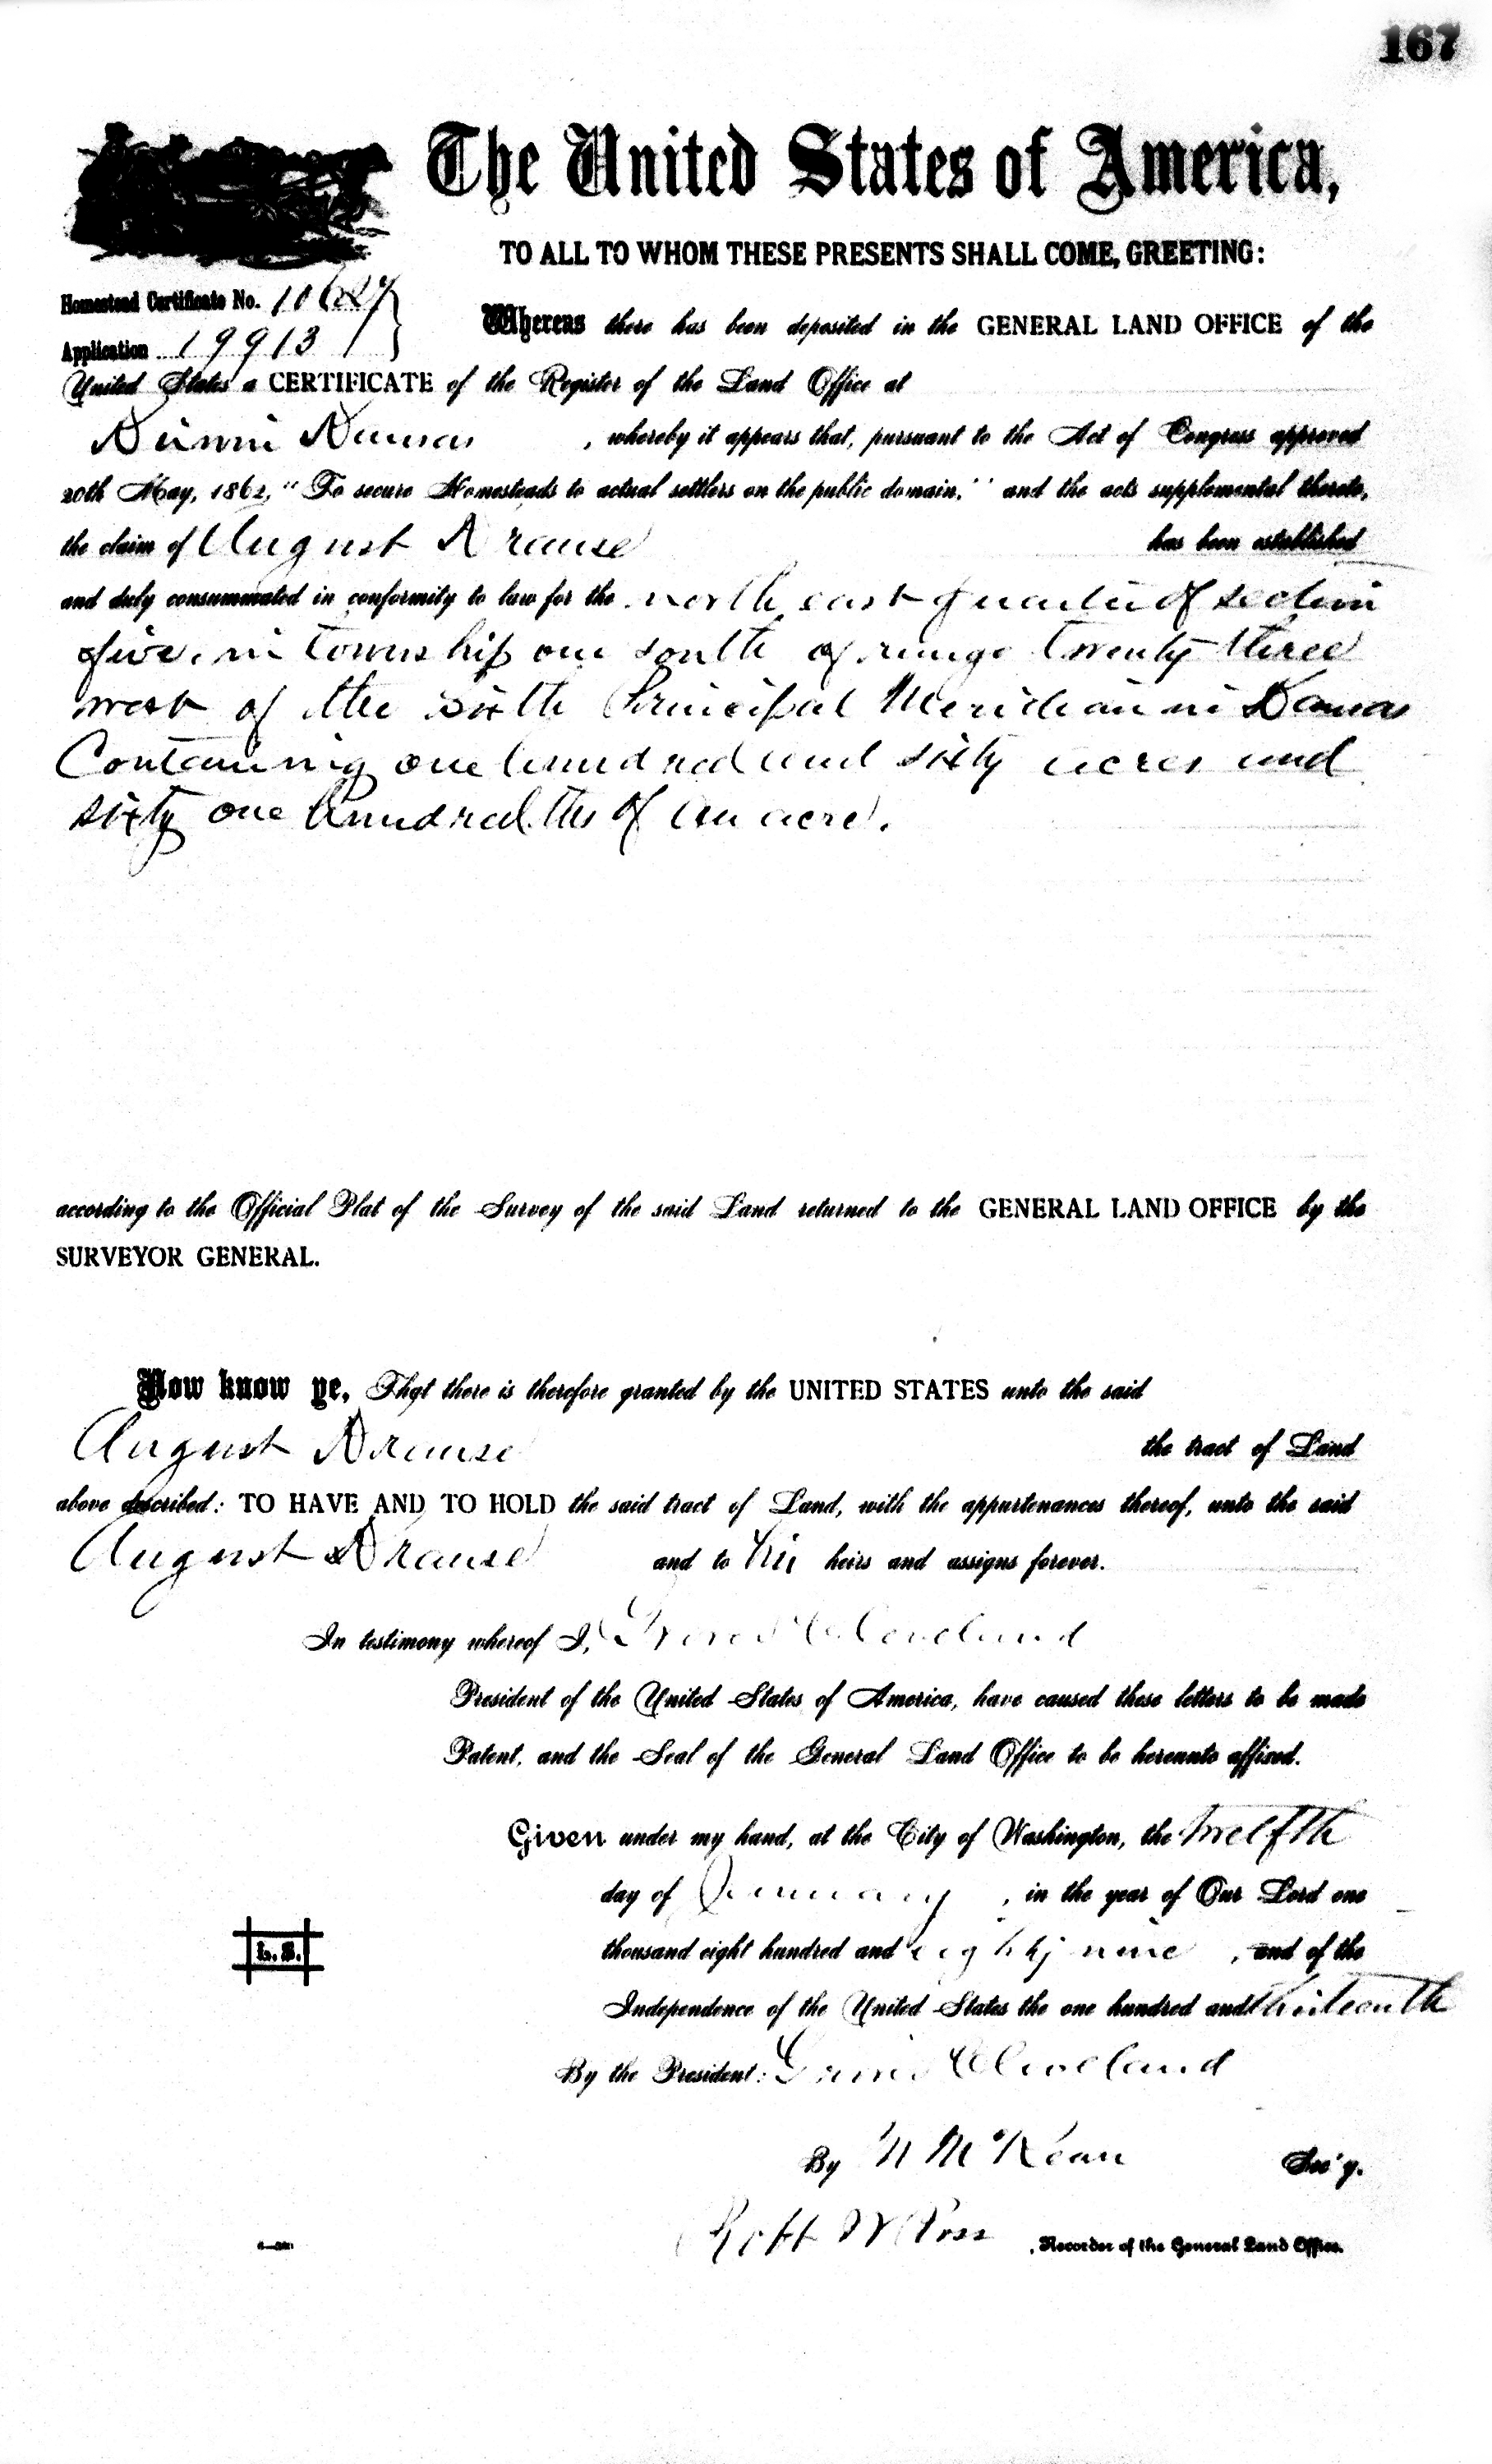 167
The United States of America,
TO ALL TO WHOM THESE PRESENTS SHALL COME, GREETING:
Homestead Certificate No. 10627
Application 19913
Whereas there has been deposited in the GENERAL LAND OFFICE of the
United States a CERTIFICATE of the Register of the Land Office at
Kirwin Kansas, whereby it appears that, pursuant to the Act of Congress approved
20th May, 1862, "To secure Homesteads to actual settlers on the public domain," and the acts supplemental thereto,
the claim of August Krause has been established
and duly consummated in conformity to law for the north east quarter of section
five, in township one south of range twenty three
west of the sixth Principal Meridian in Kansas
Containing one hundred and sixty acres and
sixty one hundredths of an acre.
according to the Official Plat of the Survey of the said Land returned to the GENERAL LAND OFFICE by the
SURVEYOR GENERAL.
Now know ye, That there is therefore granted by the UNITED STATES unto the said
August Krause the tract of Land
above described: TO HAVE AND TO HOLD the said tract of Land, with the appurtenances thereof, unto the said
August Krause and to his heirs and assigns forever.
In testimony whereof I, Grover Cleveland
President of the United States of America, have caused these letters to be made
Patent, and the Seal of the General Land Office to be hereunto affixed.
Given under my hand, at the City of Washington, the twelfth
day of January, in the year of Our Lord one
thousand eight hundred and eighty nine, and of the
L. S.
Independence of the United States the one hundred and thirteenth
By the President: Grover Cleveland
By M McKean Sec'y.
Robt W Ross, Recorder of the General Land Office.